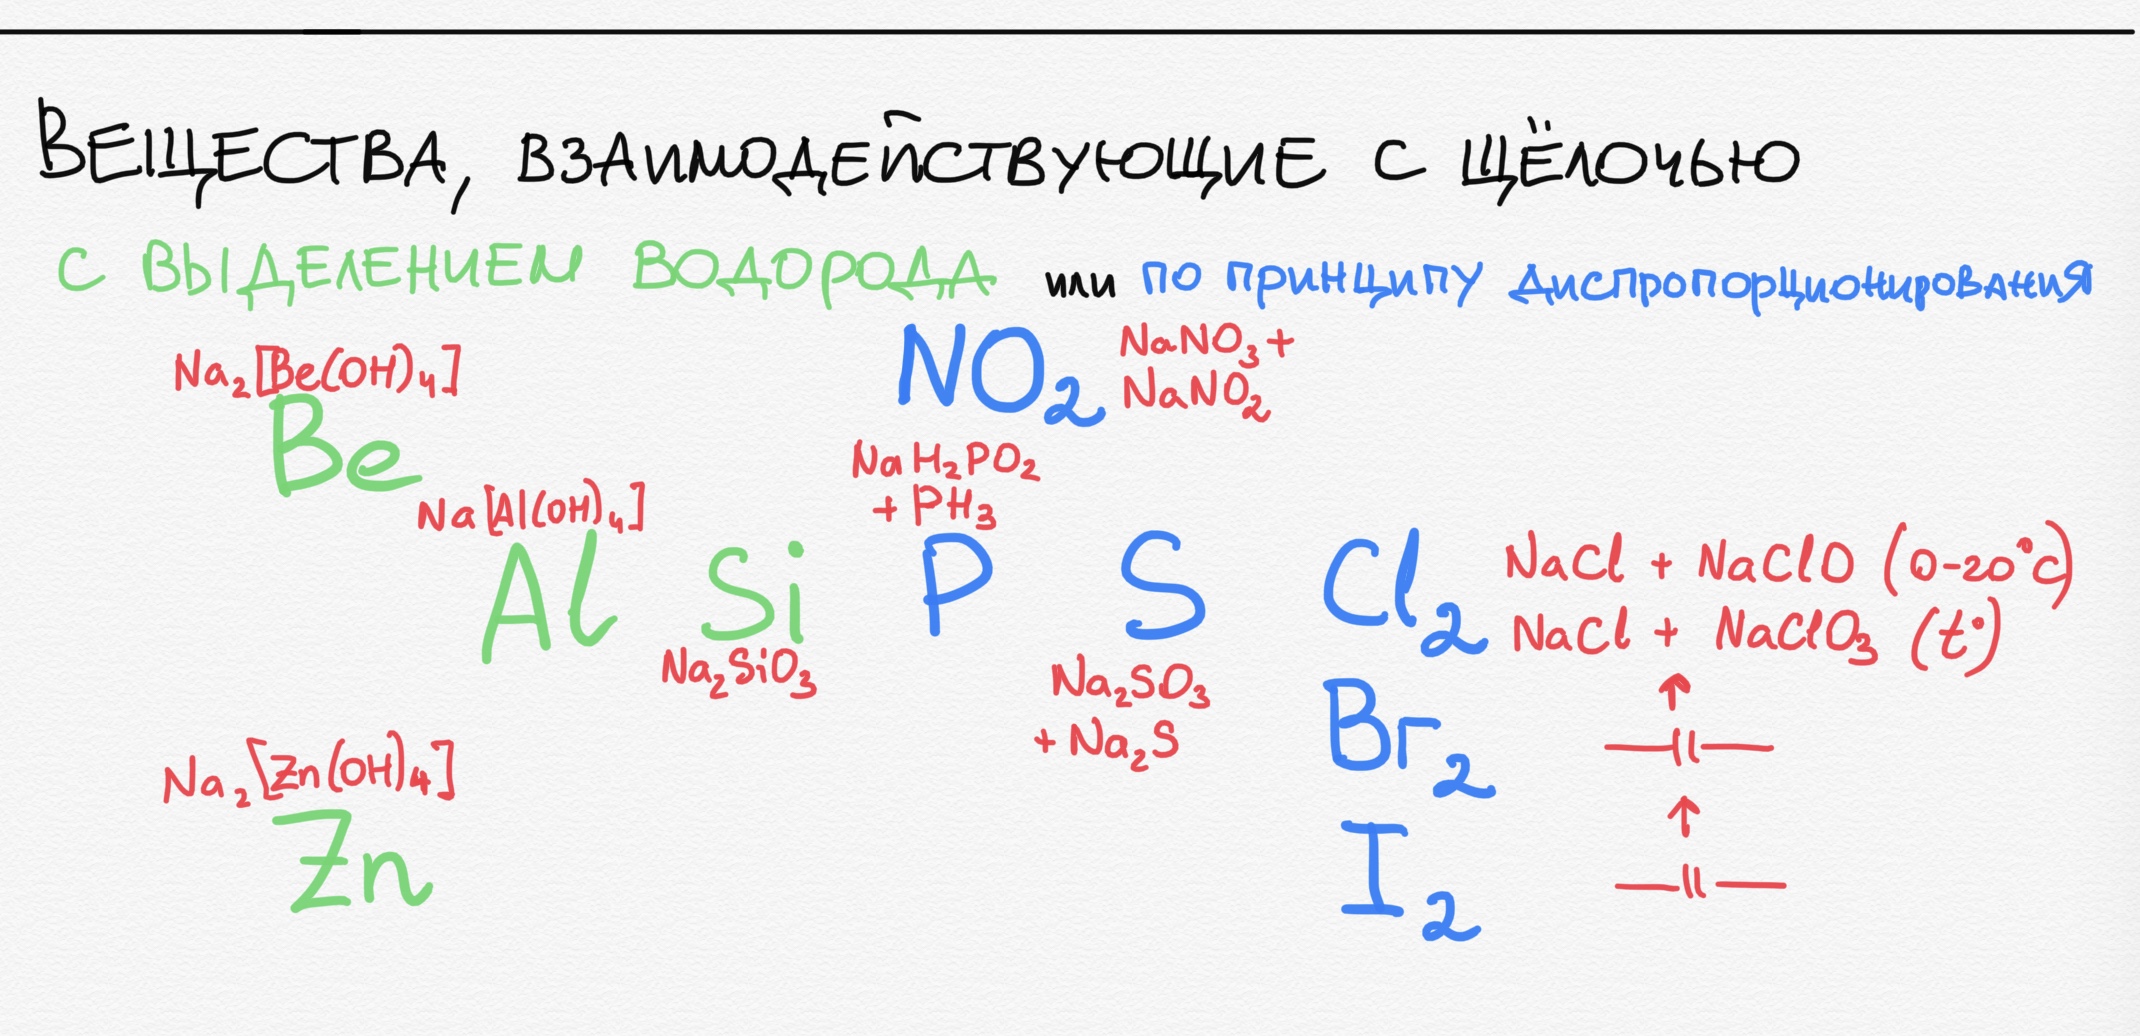 Вещества, взаимодействующие с щёлочью
с выделением водорода или по принципу диспропорционирования
Na₂[Be(OH)₄]
Be
NO₂
NaNO₃ +
NaNO₂
Na[Al(OH)₄]
Al
Si
Na₂SiO₃
NaH₂PO₂
+ PH₃
P
S
Na₂SO₃
+ Na₂S
Cl₂
NaCl + NaClO (0-20°C)
NaCl + NaClO₃ (t°)
Br₂
↑
—||—
Na₂[Zn(OH)₄]
Zn
I₂
↑
—||—